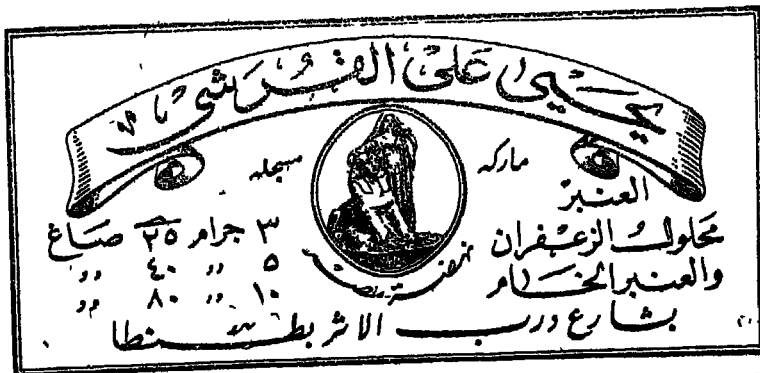 يحيى على القرشى
ماركه مسجله
العنبر
محلول الزعفران
والعنبر الخام
نهضة مصر
٣ جرام ٢٥ صاغ
٥ " ٤٠ "
١٠ " ٨٠ "
بشارع درب الاثر بطنطا